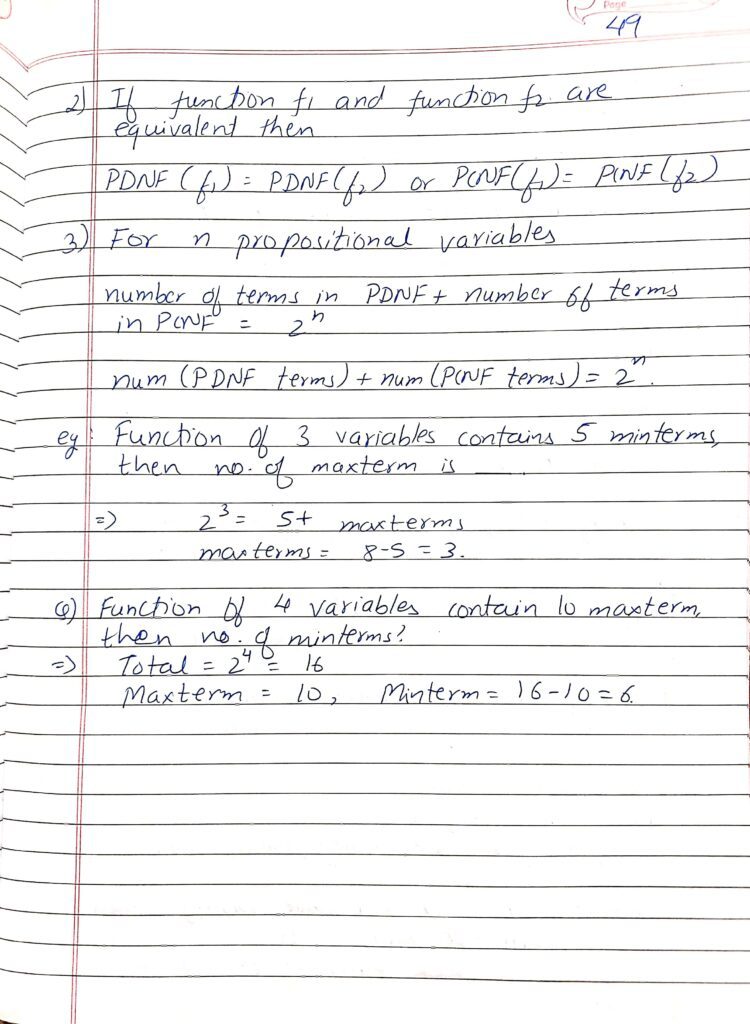 Page
49
2) If function f1 and function f2 are
equivalent then
PDNF (f1) = PDNF(f2) or PCNF(f1) = PCNF(f2)
3) For n propositional variables
number of terms in PDNF + number of terms
in PCNF = 2^n
num (PDNF terms) + num (PCNF terms) = 2^n.
eg: Function of 3 variables contains 5 minterms,
then no. of maxterm is ____
=> 2^3 = 5+ maxterms
maxterms = 8-5 = 3.
Q) Function of 4 variables contain 10 maxterm,
then no. of minterms?
=> Total = 2^4 = 16
Maxterm = 10, Minterm = 16-10 = 6.